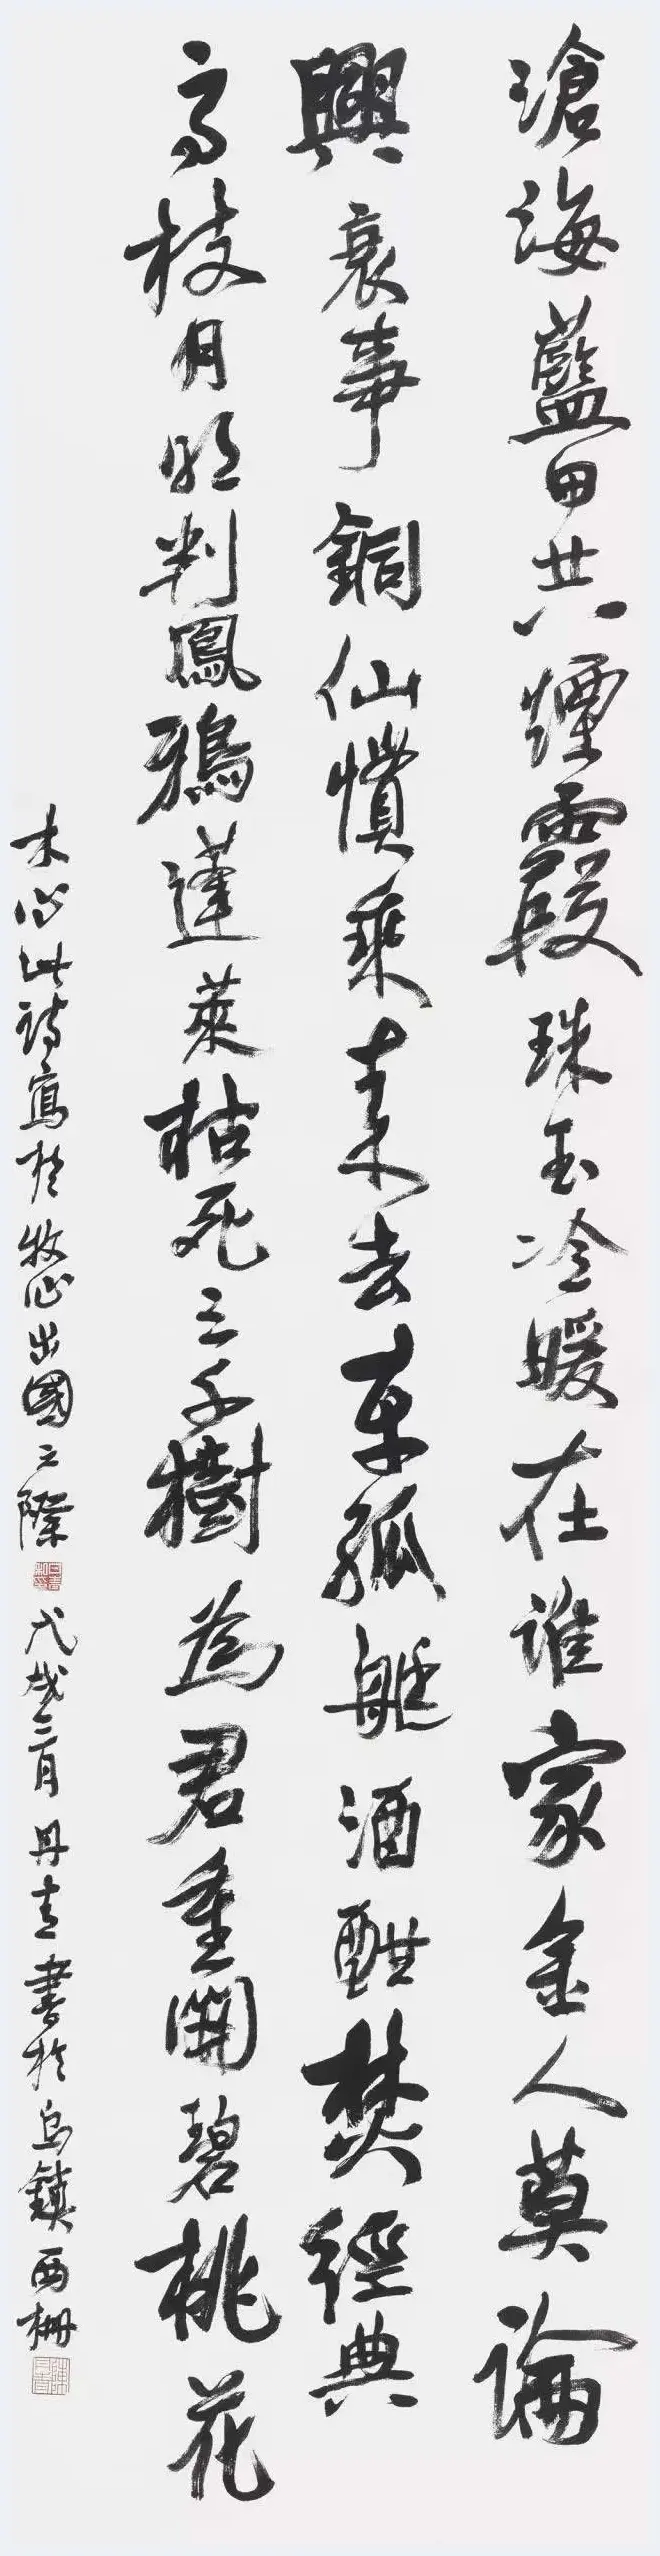 滄海藍田共煙霞珠玉冷暖在誰家金人莫論
興衰事銅仙慣乘來去車孤艇酒酣焚經典
高枝月明判鳳鴉蓬萊枯死三千樹為君重開碧桃花
木心此詩寫於牧心出國之際
戊戌三月丹青書於烏鎮西柵